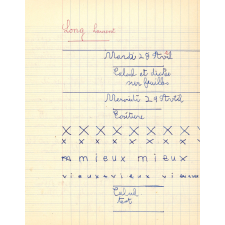 Long Laurent
Mardi 28 Avril
Calcul et dictée
sur feuilles
Mercredi 29 Avril
Ecriture
X X X X X X X X
x x x x x x x x
m mieux mieux
vieux vieux vieux
Calcul
test